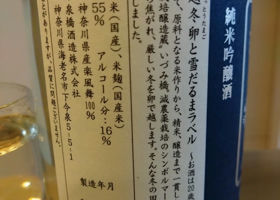 純米吟醸酒
冬・卵と雪だるまラベル
～お酒は20歳
て、原料となる米作りから、精米、醸造まで一貫し
培醸造蔵"いづみ橋。減農薬栽培のシンボルマー
焦がれ、厳しい冬を卵で越します。そんな冬の田
米(国産)、米麹(国産米)
55% アルコール分:16%
神奈川県産楽風舞100%
泉橋酒造株式会社
神奈川県海老名市下今泉5-5-1
とがありますが、品質に問題ございません。
製造年月